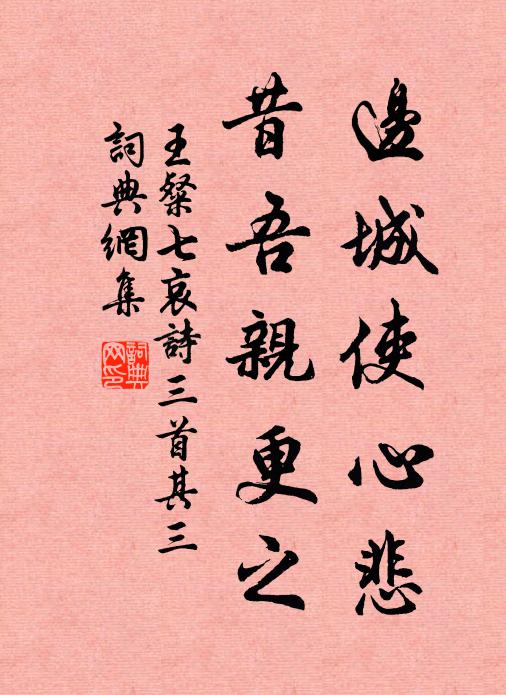 邊城使心悲
昔吾親更之
王粲七哀詩三首其三
詞典網集
詞典网印